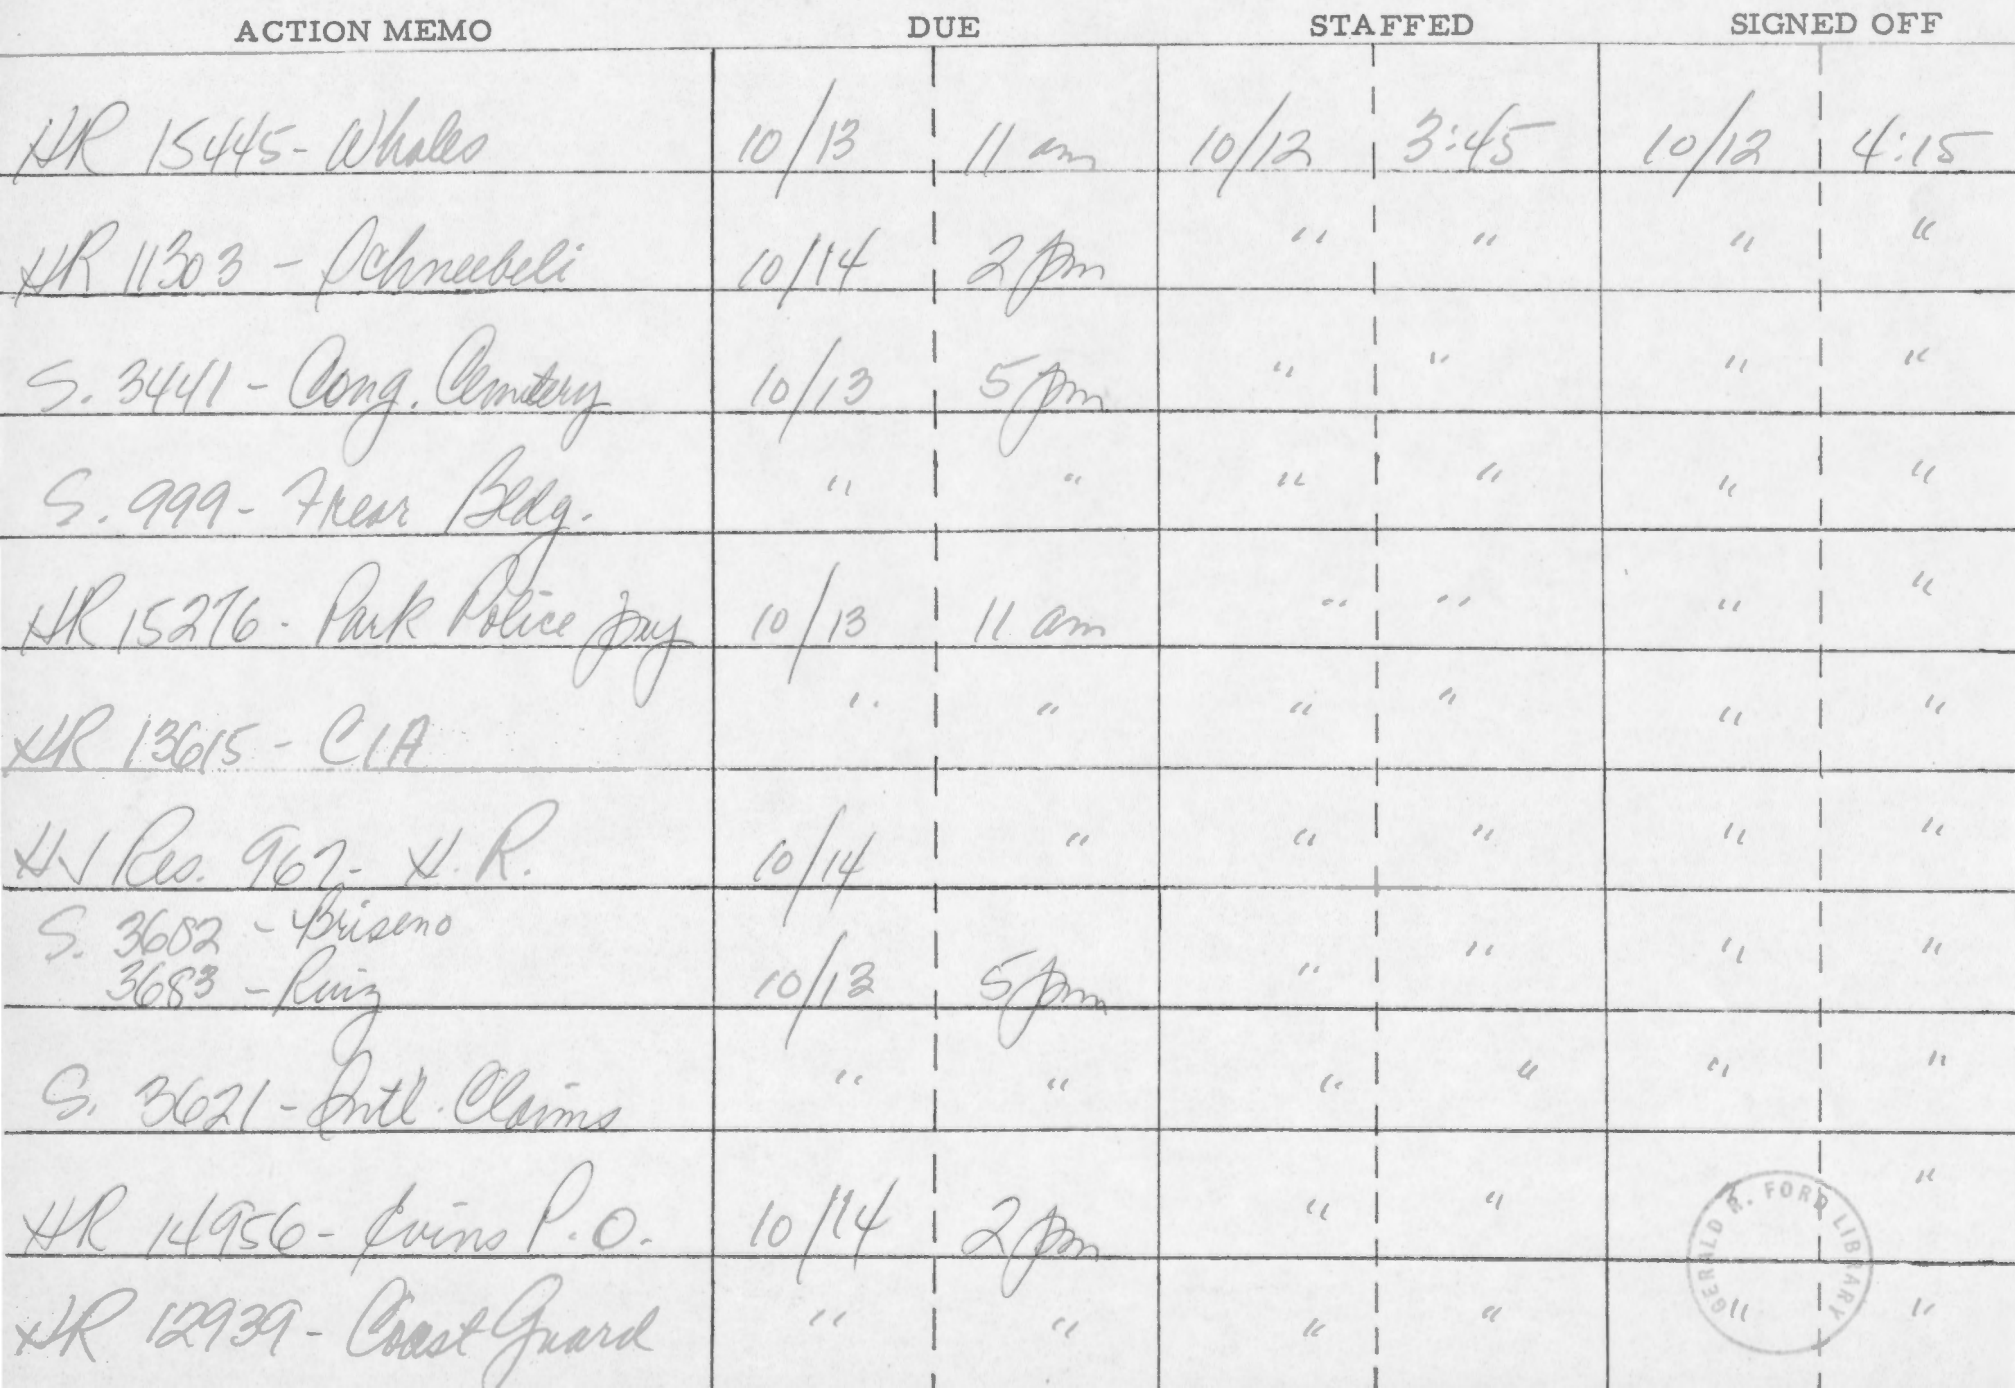 ACTION MEMO DUE STAFFED SIGNED OFF
HR 15445 - Whales 10/13 11 am 10/12 3:45 10/12 4:15
HR 11303 - Schneebeli 10/14 2 pm " " " "
S. 3441 - Cong. Cemetery 10/13 5 pm " " " "
S. 999 - Frear Bldg. " " " " " "
HR 15276 - Park Police pay 10/13 11 am " " " "
HR 13615 - CIA " " " " " "
HJ Res. 967 - H.R. 10/14 " " " " "
S. 3682 - Briseno
3683 - Ruiz 10/13 5 pm " " " "
S. 3621 - Intl. Claims " " " " " "
HR 14956 - Evins P.O. 10/14 2 pm " " "
HR 12939 - Coast Guard " " " " " "
GERALD R. FORD LIBRARY